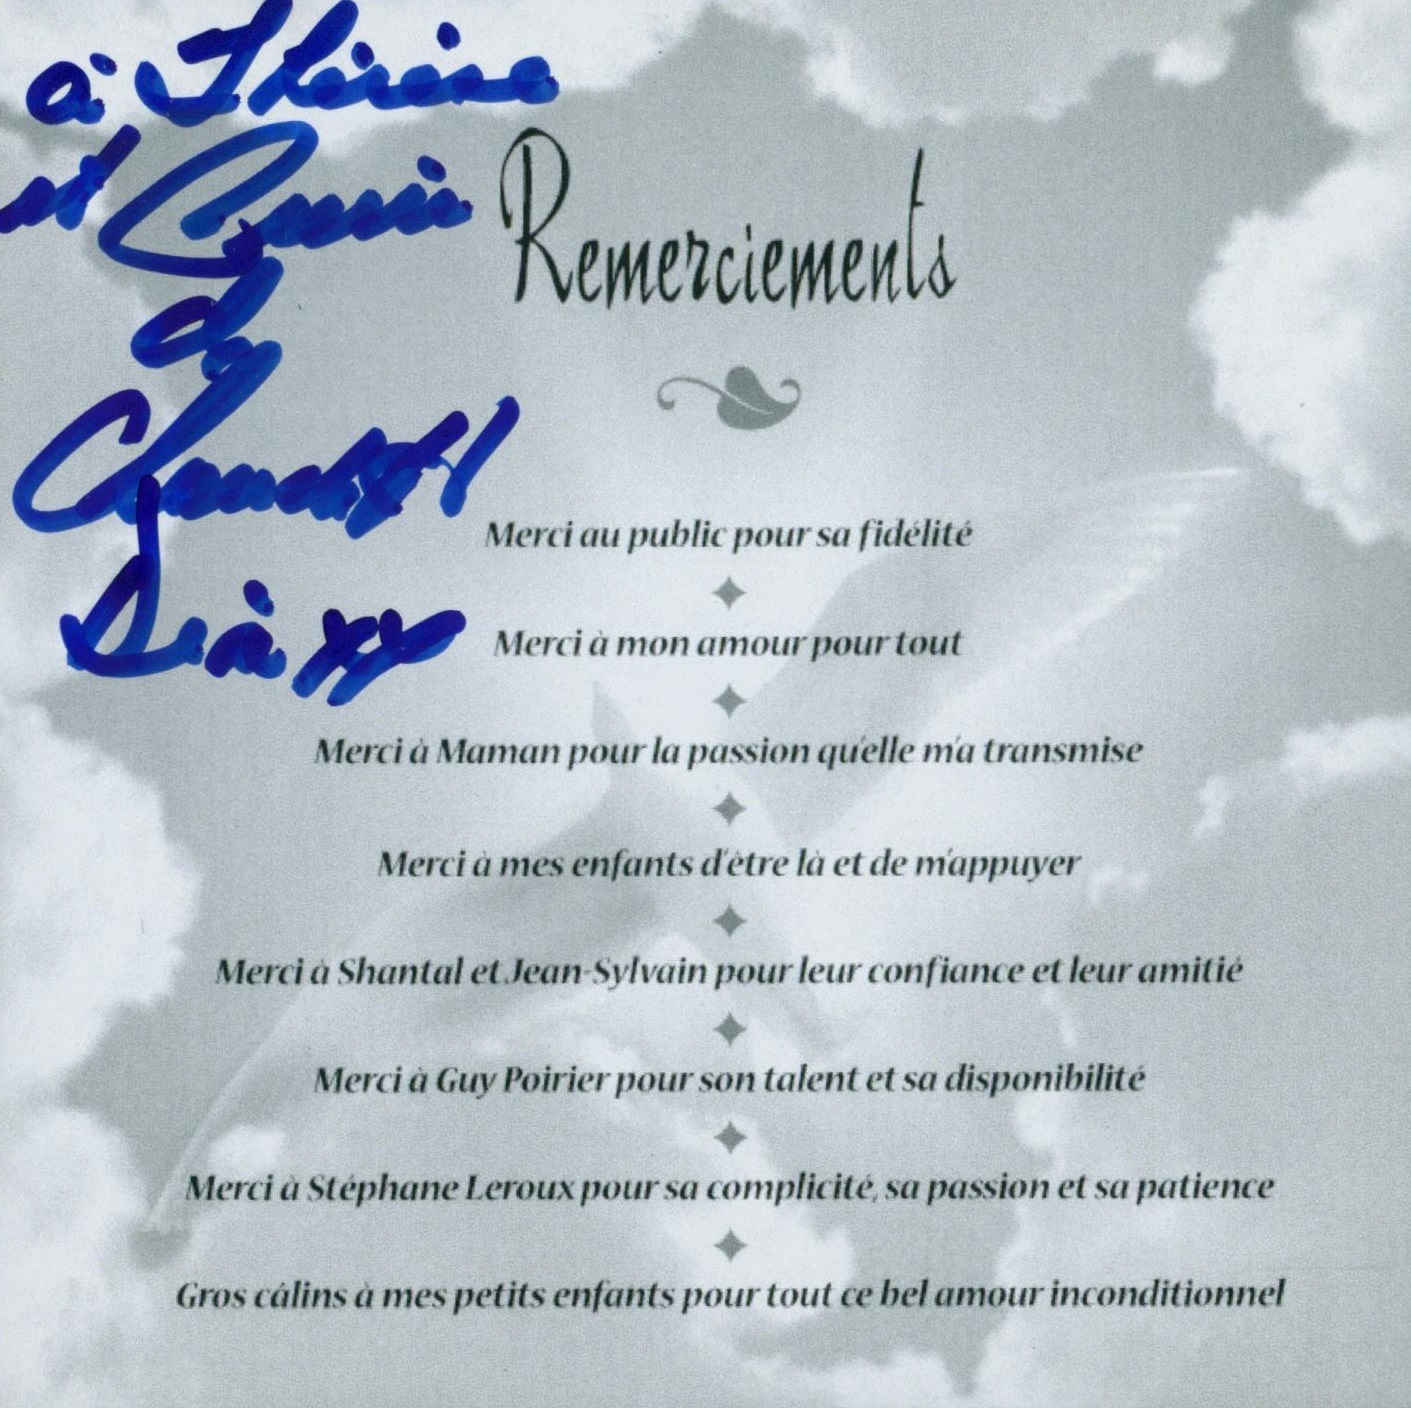 à Thérèse
et
de
Remerciements
Merci au public pour sa fidélité
Merci à mon amour pour tout
Merci à Maman pour la passion qu'elle m'a transmise
Merci à mes enfants d'être là et de m'appuyer
Merci à Shantal et Jean-Sylvain pour leur confiance et leur amitié
Merci à Guy Poirier pour son talent et sa disponibilité
Merci à Stéphane Leroux pour sa complicité, sa passion et sa patience
Gros câlins à mes petits enfants pour tout ce bel amour inconditionnel